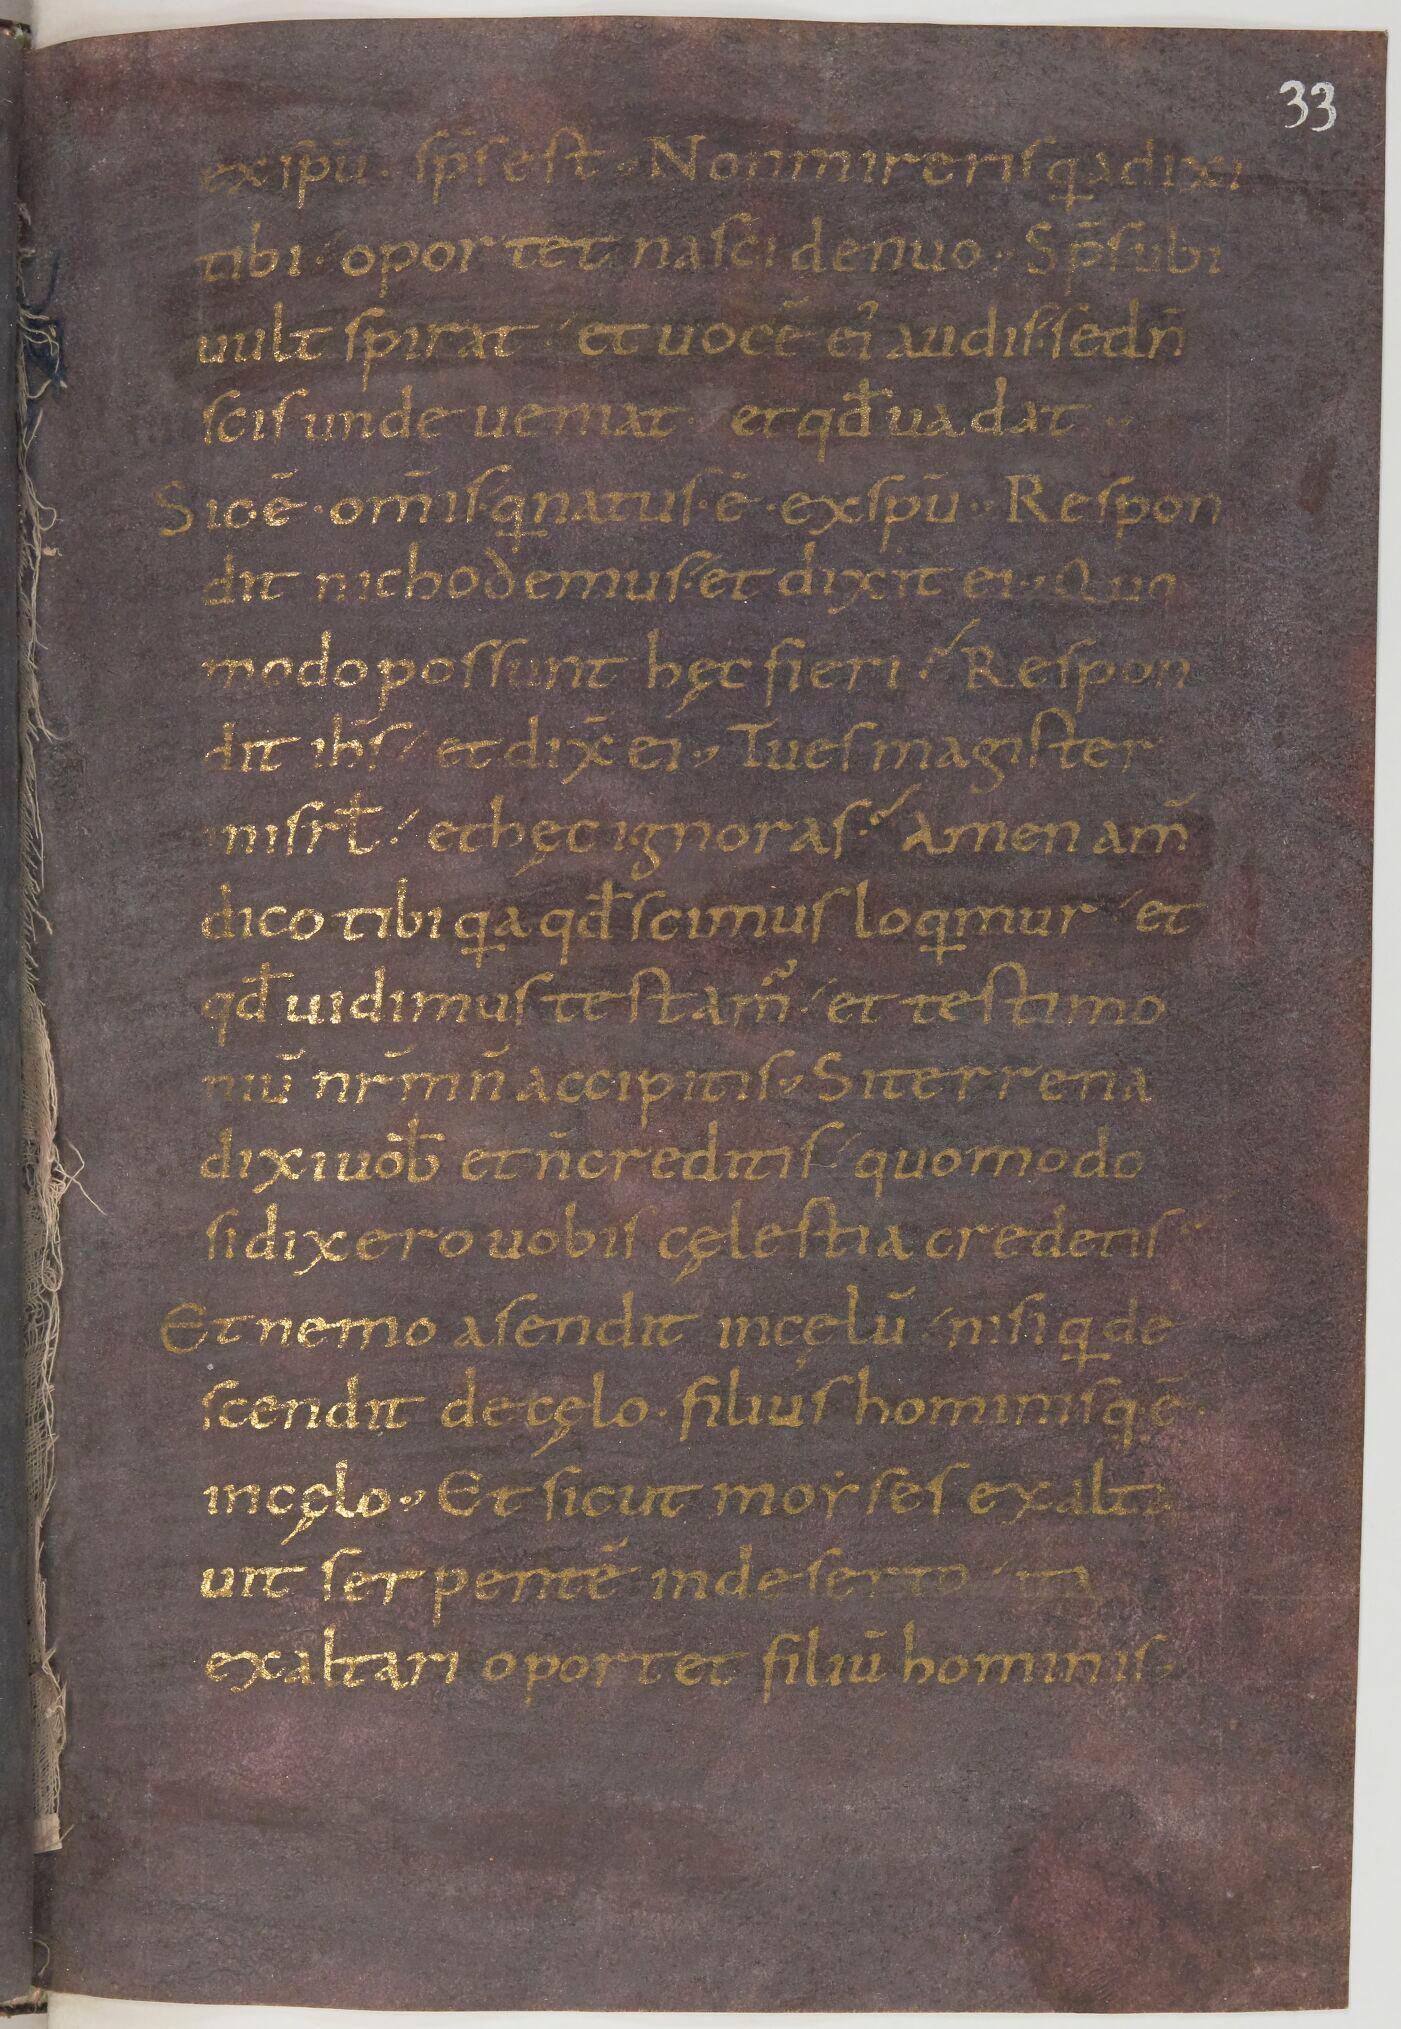 33
ex sp̄u · sp̄s est · Non mireris q̄a dixi
tibi · oportet nasci denuo · Sp̄s ubi
uult spirat · et uocē ei᾽ audis · sed n̄
scis unde ueniat · et qđ uadat ··
Sic · ē · om̄is q̄ natus · ē · ex sp̄u · Respon
dit nichodemus · et dixit ei · Quo
modo possunt hęc fieri ? Respon
dit ih̄s · et dix̄ ei · Tu es magister
in isrł · et hęc ignoras ? amen am̄
dico tibi q̄a qđ scimus loq̄mur · et
qđ uidimus testam᷑ · et testimo
niū nr̄m n̄ accipitis · Si terrena
dixi uob̄ et n̄ creditis · quomodo
si dixero uobis cęlestia credetis ·
Et nemo asendit in cęlū · nisi q̄ de
scendit de cęlo · filius hominis q̄ ē ·
in cęlo · Et sicut moẏses exalta
uit serpentē in deserto · ita
exaltari oportet filiū hominis ·